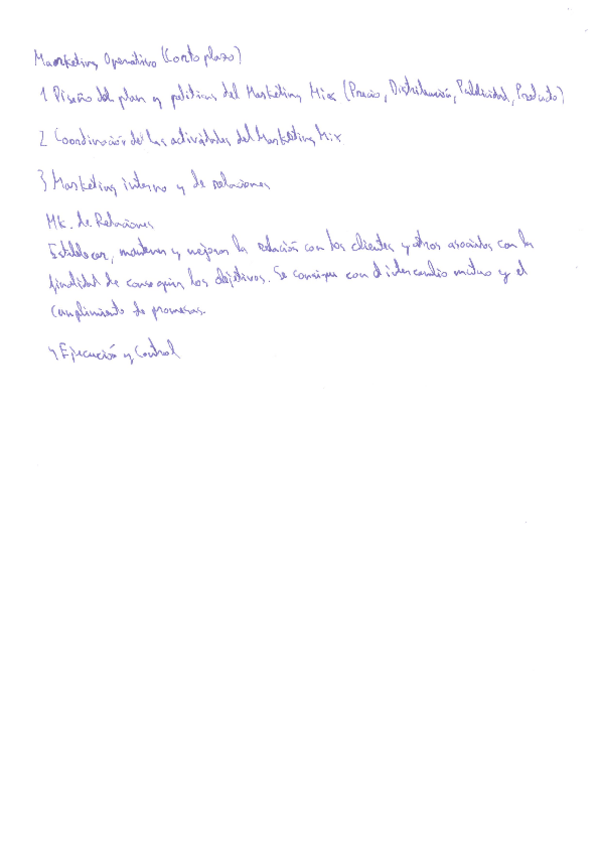 Marketing Operativo (Corto plazo)
1 Diseño del plan y politicas del Marketing Mix (Precio, Distribución, Publicidad, Producto)
2 Coordinación de las actividades del Marketing Mix
3 Marketing interno y de relaciones
Mk. de Relaciones
Establecer, mantener y mejorar la relación con los clientes y otros asociados con la
finalidad de conseguir los objetivos. Se consigue con el intercambio mutuo y el
cumplimiento de promesas.
4 Ejecución y Control